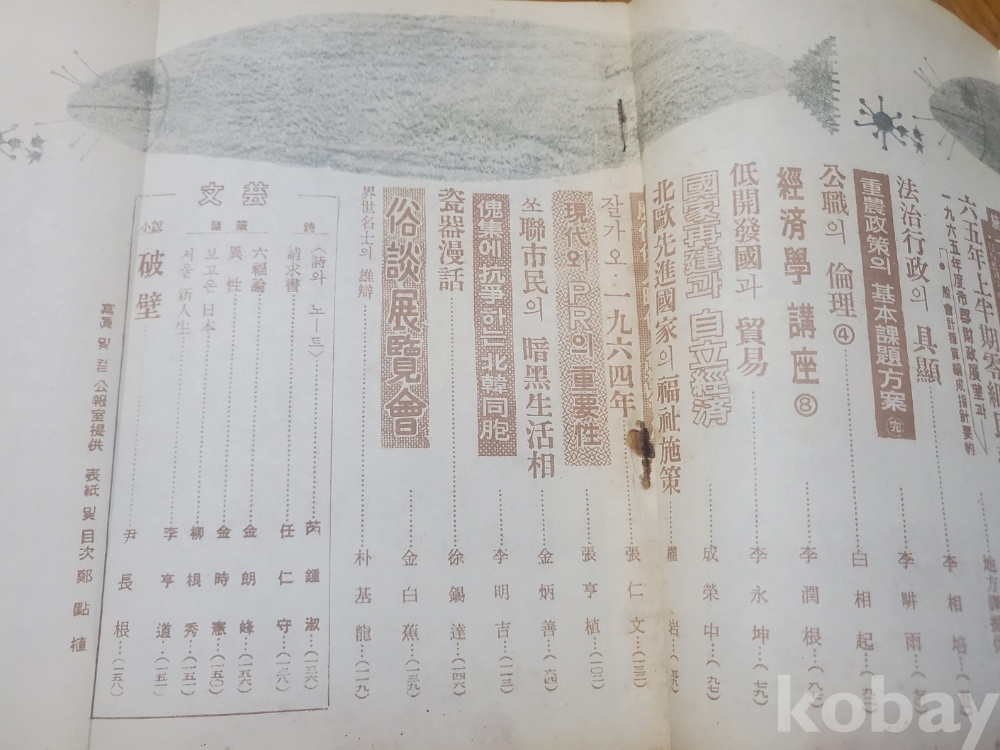 六五年上半期零細
一九六五年度市郡財政展望과
一般會計豫算編成指針要約
李相培
法治行政의 具顯 李畊雨
重農政策의 基本課題方案 完 白相起
公職의 倫理 ④
經済學 講座 ⑧ 李潤根 (八七)
低開發國과 貿易 李永坤 (七九)
國家再建과 自立經済 成榮中 (九七)
北歐先進國家의 福祉施策 岩
잘가오 一九六四年 張仁文 (一三二)
現代와 PR의 重要性 張亨植 (一〇二)
쏘聯市民의 暗黑生活相 金炳善
傀集에 抗爭한 北韓同胞 李明吉 (一一三)
瓷器漫話 徐錫達 (一四六)
俗談展覽會 金白蕉 (一三九)
界世名士의 雄辯 朴基龍 (一一九)
文芸
詩 〈詩와 노ー트〉 芮鍾淑 (一三六)
請求書 任仁守 (一三八)
隨筆 六福論 金朗峰 (一五六)
異性 金時憲 (一五〇)
보고온 日本 柳根秀 (一五四)
서울 新人生 李亨道 (一五一)
小說 破壁 尹長根 (一五八)
寫眞 및 컽 公報室提供 表紙 및 目次 鄭點植
kobay